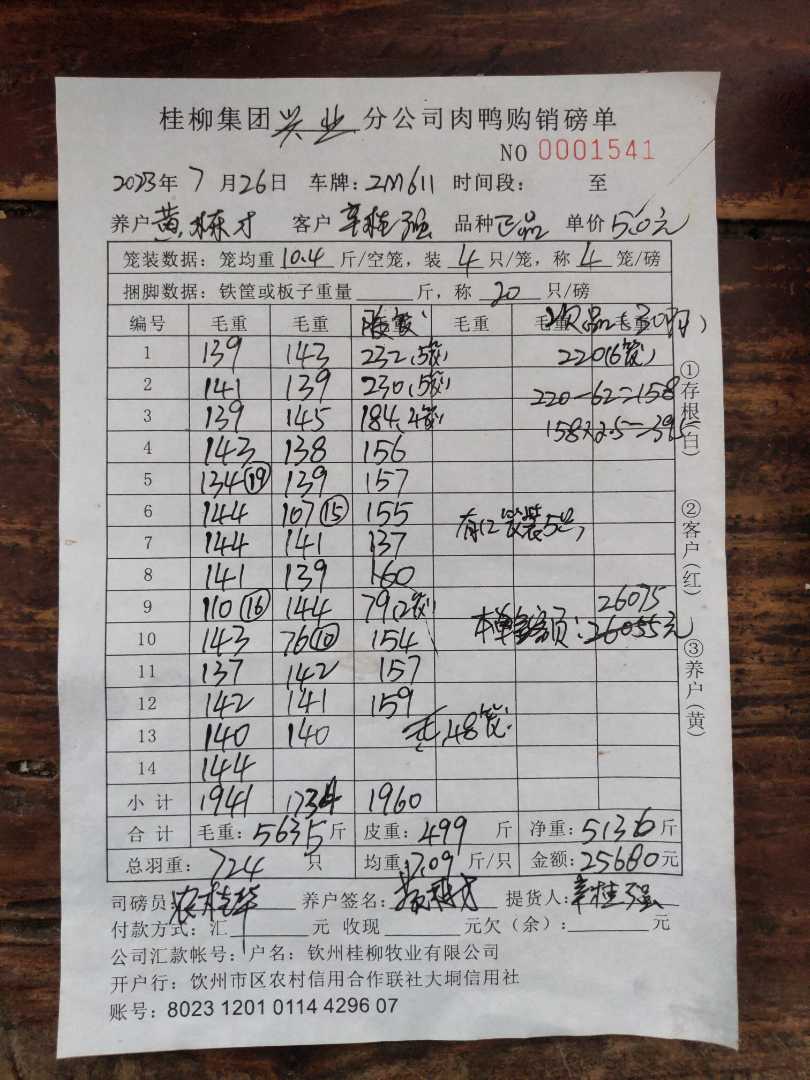 桂柳集团兴业分公司肉鸭购销磅单
NO 0001541
2023年 7 月 26 日 车牌：2M611 时间段： 至
养户 黄栋才 客户 辛桂强 品种 正品 单价 5.0元
笼装数据：笼均重 10.4 斤/空笼，装 4 只/笼，称 4 笼/磅
捆脚数据：铁筐或板子重量 斤，称 20 只/磅
编号 毛重 毛重 毛重 毛重 毛重
1 139 143 232(5笼) 220(6笼)
2 141 139 230(5笼) 220-62=158
3 139 145 184(4笼) 158×2.5=395
4 143 138 156
5 134⑲ 139 157
6 144 107⑮ 155 有12笼装5只
7 144 141 137
8 141 139 160
9 110⑯ 144 79(2笼) 26075
10 143 76⑩ 154 本单金额：26055元
11 137 142 157
12 142 141 159
13 140 140 共48笼
14 144
小计 1941 1734 1960
合计 毛重：5635斤 皮重：499 斤 净重：5136斤
总羽重： 724 只 均重：7.09 斤/只 金额：25680元
司磅员 养户签名： 提货人：辛桂强
付款方式：汇 元 收现 元欠（余）： 元
公司汇款帐号：户名：钦州桂柳牧业有限公司
开户行：钦州市区农村信用合作联社大垌信用社
账号：8023 1201 0114 4296 07
①存根（白）
②客户（红）
③养户（黄）